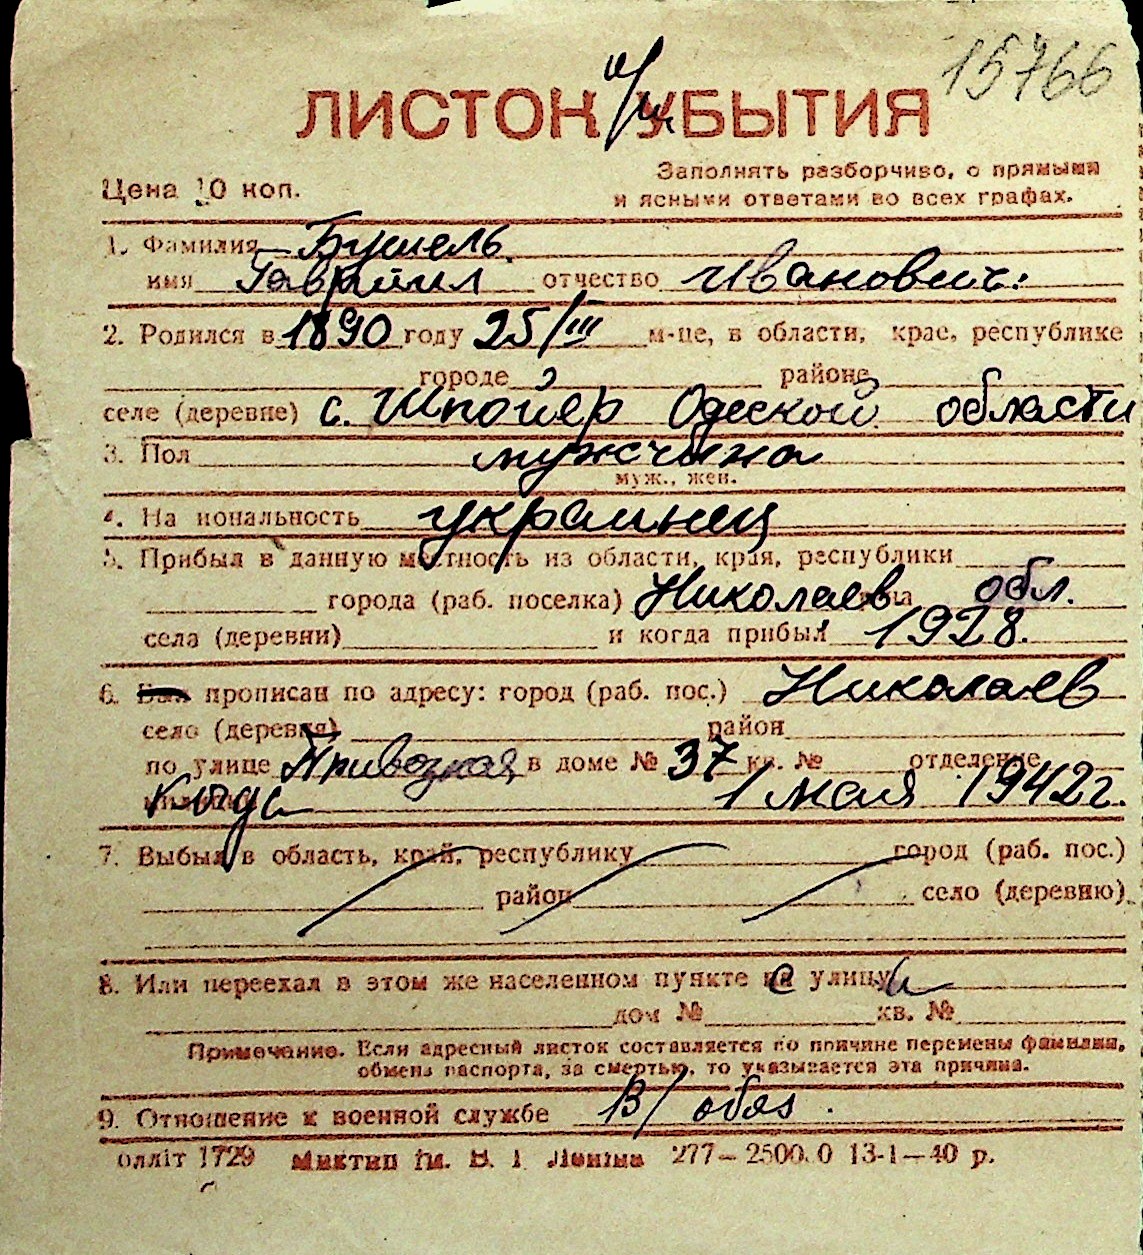 15766
ЛИСТОК УБЫТИЯ
Цена 10 коп.
Заполнять разборчиво, с прямыми
и ясными ответами во всех графах.
1. Фамилия Бушель
имя Гавриил отчество Иванович.
2. Родился в 1890 году 25/III м-це, в области, крае, республике
городе районе
селе (деревне) с. Шпойер Одеской области
3. Пол мужчина
муж., жен.
4. На иональность украинец
5. Прибыл в данную местность из области, края, республики
города (раб. поселка) Николаев обл.
села (деревни) и когда прибыл 1928.
6. Был прописан по адресу: город (раб. пос.) Николаев
село (деревня) район
по улице Привозная в доме № 37 кв. № отделение
1 мая 1942г.
7. Выбыл в область, край, республику город (раб. пос.)
район село (деревню)
8. Или переехал в этом же населенном пункте с улицы
дом № кв. №
Примечание. Если адресный листок составляется по причине перемены фамилии,
обмена паспорта, за смертью, то указывается эта причина.
9. Отношение к военной службе В/обяз.
олліт 1729 Миктип ім. В. І Леніна 277—2500.0 13-1—40 р.